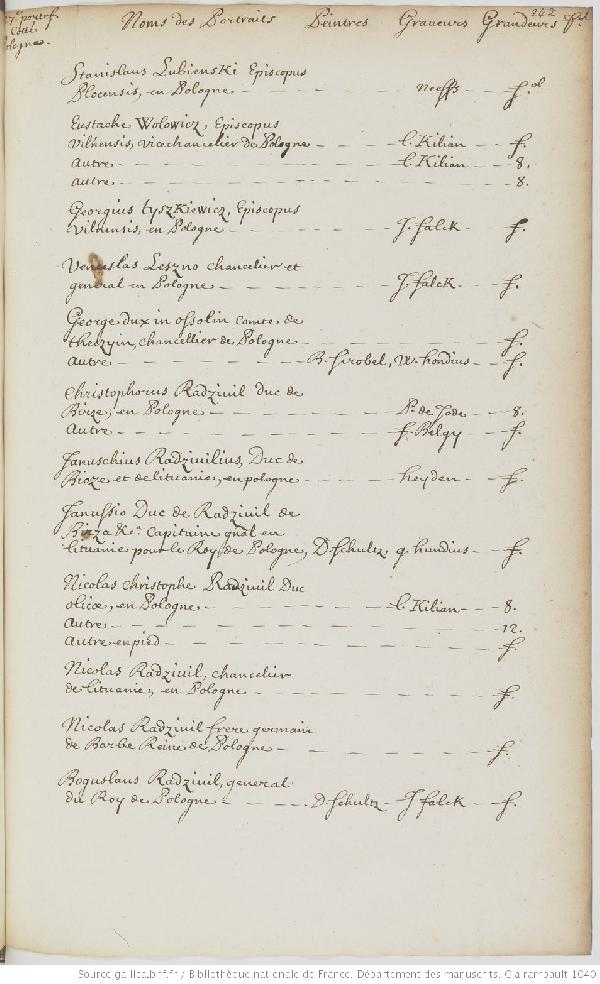 242
portef.
Noms des Portraits Peintres Graveurs Grandeurs
Pologne.
Stanislaus Lubienski Episcopus
Plocensis, en Pologne — neeffs — f.ol
Eustache Wolowicz, Episcopus
vilnensis, vicechancelier de Pologne — l. Kilian — f.
autre — l. Kilian — 8.
autre — 8.
Georgius tyszKiewicz, Episcopus
vilnensis, en Pologne — J. falck — f.
Venceslas Leszno chancelier et
general en Pologne — J. falck — f.
George dux in ossolin comte de
thenzyin, chancellier de Pologne — f.
autre — B. strobel, W. hondius — f.
Christophorus Radzivil duc de
Birze, en Pologne — P. de Jode — 8.
autre — f. Belgy — f.
Januschius Radzivilius, Duc de
Bioze et de lituanie, en pologne — heyden — f.
Janussio Duc de Radzivil de
Birza &c. Capitaine gnal en
lituanie pour le Roy de Pologne, D schultz, g. hundius — f.
Nicolas christophe Radzivil Duc
olicæ, en Pologne — l. Kilian — 8.
autre — 12.
autre en pied — f.
Nicolas Radzivil, chancelier
de lituanie, en Pologne — f.
Nicolas Radzivil frere germain
de Barbe Reine de Pologne — f.
Boguslaus Radzivil, general
du Roy de Pologne — D schultz — J falck — f.
Source gallica.bnf.fr / Bibliothèque nationale de France. Département des manuscrits. Clairambault 1040